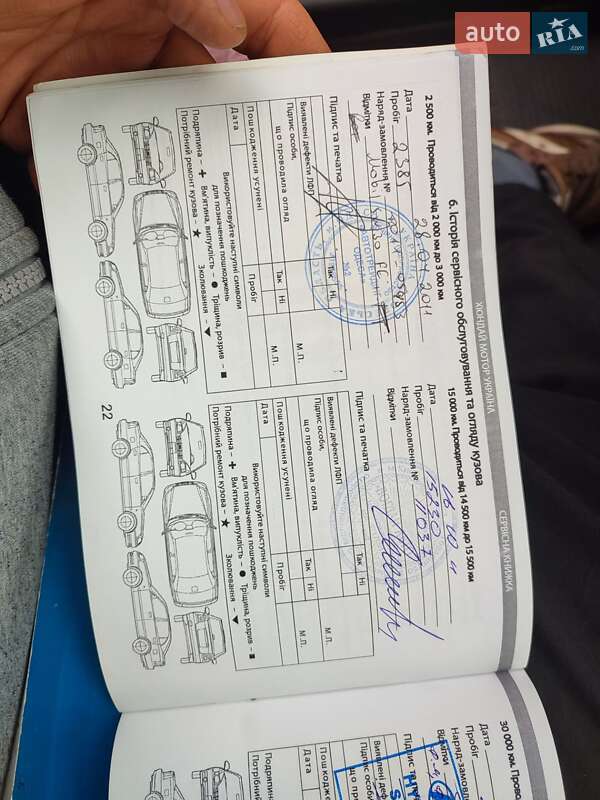 auto RIA.com
ХЮНДАЙ МОТОР УКРАЇНА
СЕРВІСНА КНИЖКА
6. Історія сервісного обслуговування та огляду кузова
2 500 км. Проводиться від 2 000 км до 3 000 км
Дата 28.04.2011
Пробіг 2385
Наряд-замовлення №
Відмітки
Підпис та печатка
Виявлені дефекти ЛФП
Так
Ні
Підпис особи,
що проводила огляд
М.П.
Пошкодження усунені
Так
Ні
М.П.
Дата
Пробіг
Використовуйте наступні символи
для позначення пошкоджень
Подряпина – + Вм'ятина, випуклість – ● Тріщина, розрив – ■
Потрібний ремонт кузова – ★ Зколювання – ▼
15 000 км. Проводиться від 14 500 км до 15 500 км
Дата
Пробіг 15230
Наряд-замовлення №
Відмітки
Підпис та печатка
Виявлені дефекти ЛФП
Так
Ні
Підпис особи,
що проводила огляд
М.П.
Пошкодження усунені
Так
Ні
М.П.
Дата
Пробіг
Використовуйте наступні символи
для позначення пошкоджень
Подряпина – + Вм'ятина, випуклість – ● Тріщина, розрив – ■
Потрібний ремонт кузова – ★ Зколювання – ▼
22
30 000 км. Прово
Дата
Пробіг
Наряд-замовле
Відмітки
Підпис та
Виявлені де
Підпис особи
що про
Пошкодже
Дата
Подряпина
Потрібний